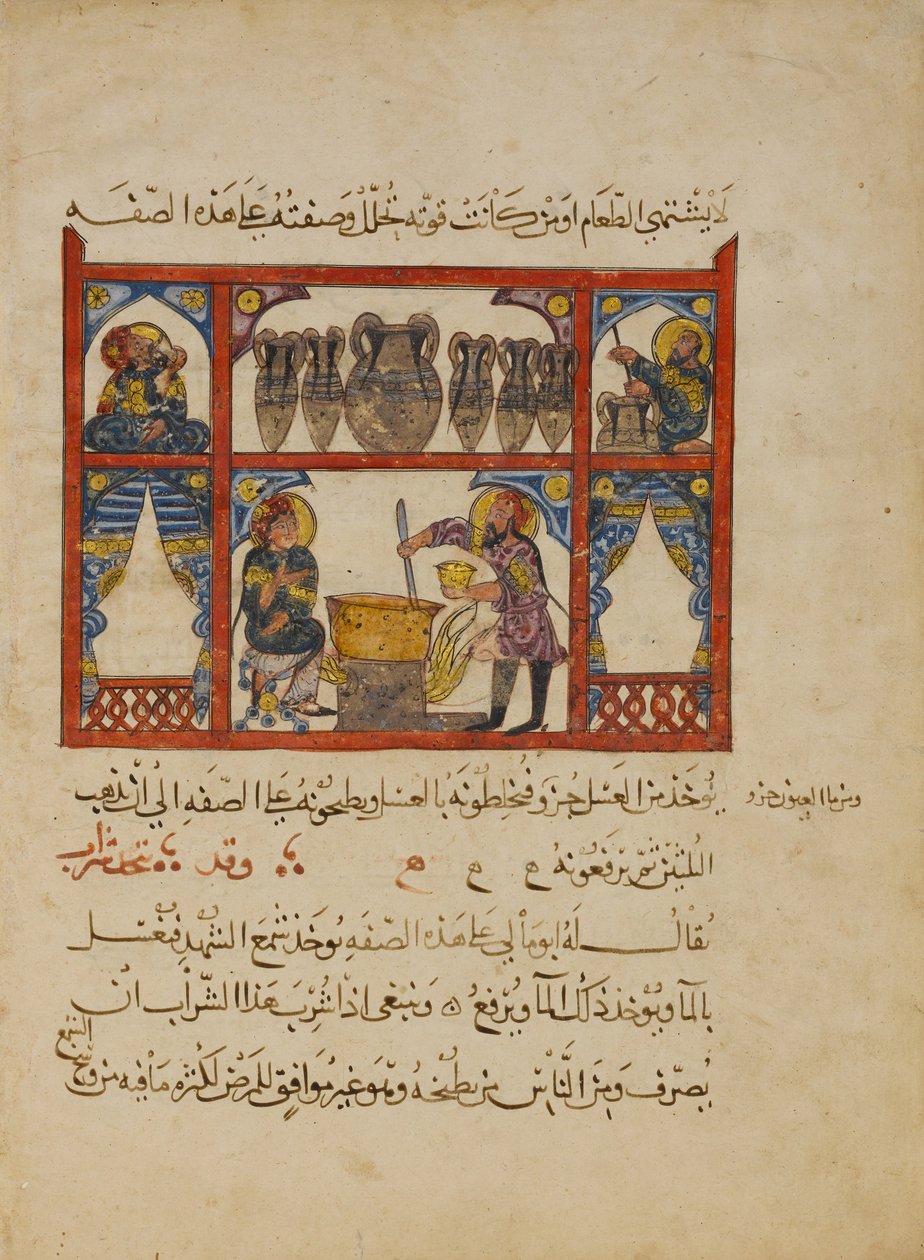 لَا يَشْتَهِي الطَّعَام اوَمَنْ كَانَتْ قوّته تُحَلَّلْ وَصِفتُهُ عَلَى هَذه الصّفَـه
يُوخَذ من العَسَل جُزو فُيخلِطُونَهُ بالعسل ويطبخونهُ علي الصّفَهِ الي انْ تذهب
ومن ما العيون جزو
الثلثين ثمّ يَرفَعُونهُ ح ح ح وقد يتخذ شراب
يُقَالُ لَهُ ابومالي عَلي هَذه الصّفَهِ يُوخَذ شمَع الشهدِ فيغسل
بالمآ ويُوخذ ذَلك المآ ويُرفعُ ٥ وَينبغي اذا شُرِبَ هَذا الشّراب انْ
يُصَرّف وَمِنَ النَّاسِ من يطبخهُ وهُوَ غير مُوَافِق للمَرضَ لكثره مَا فيه من وسخ
الشمع